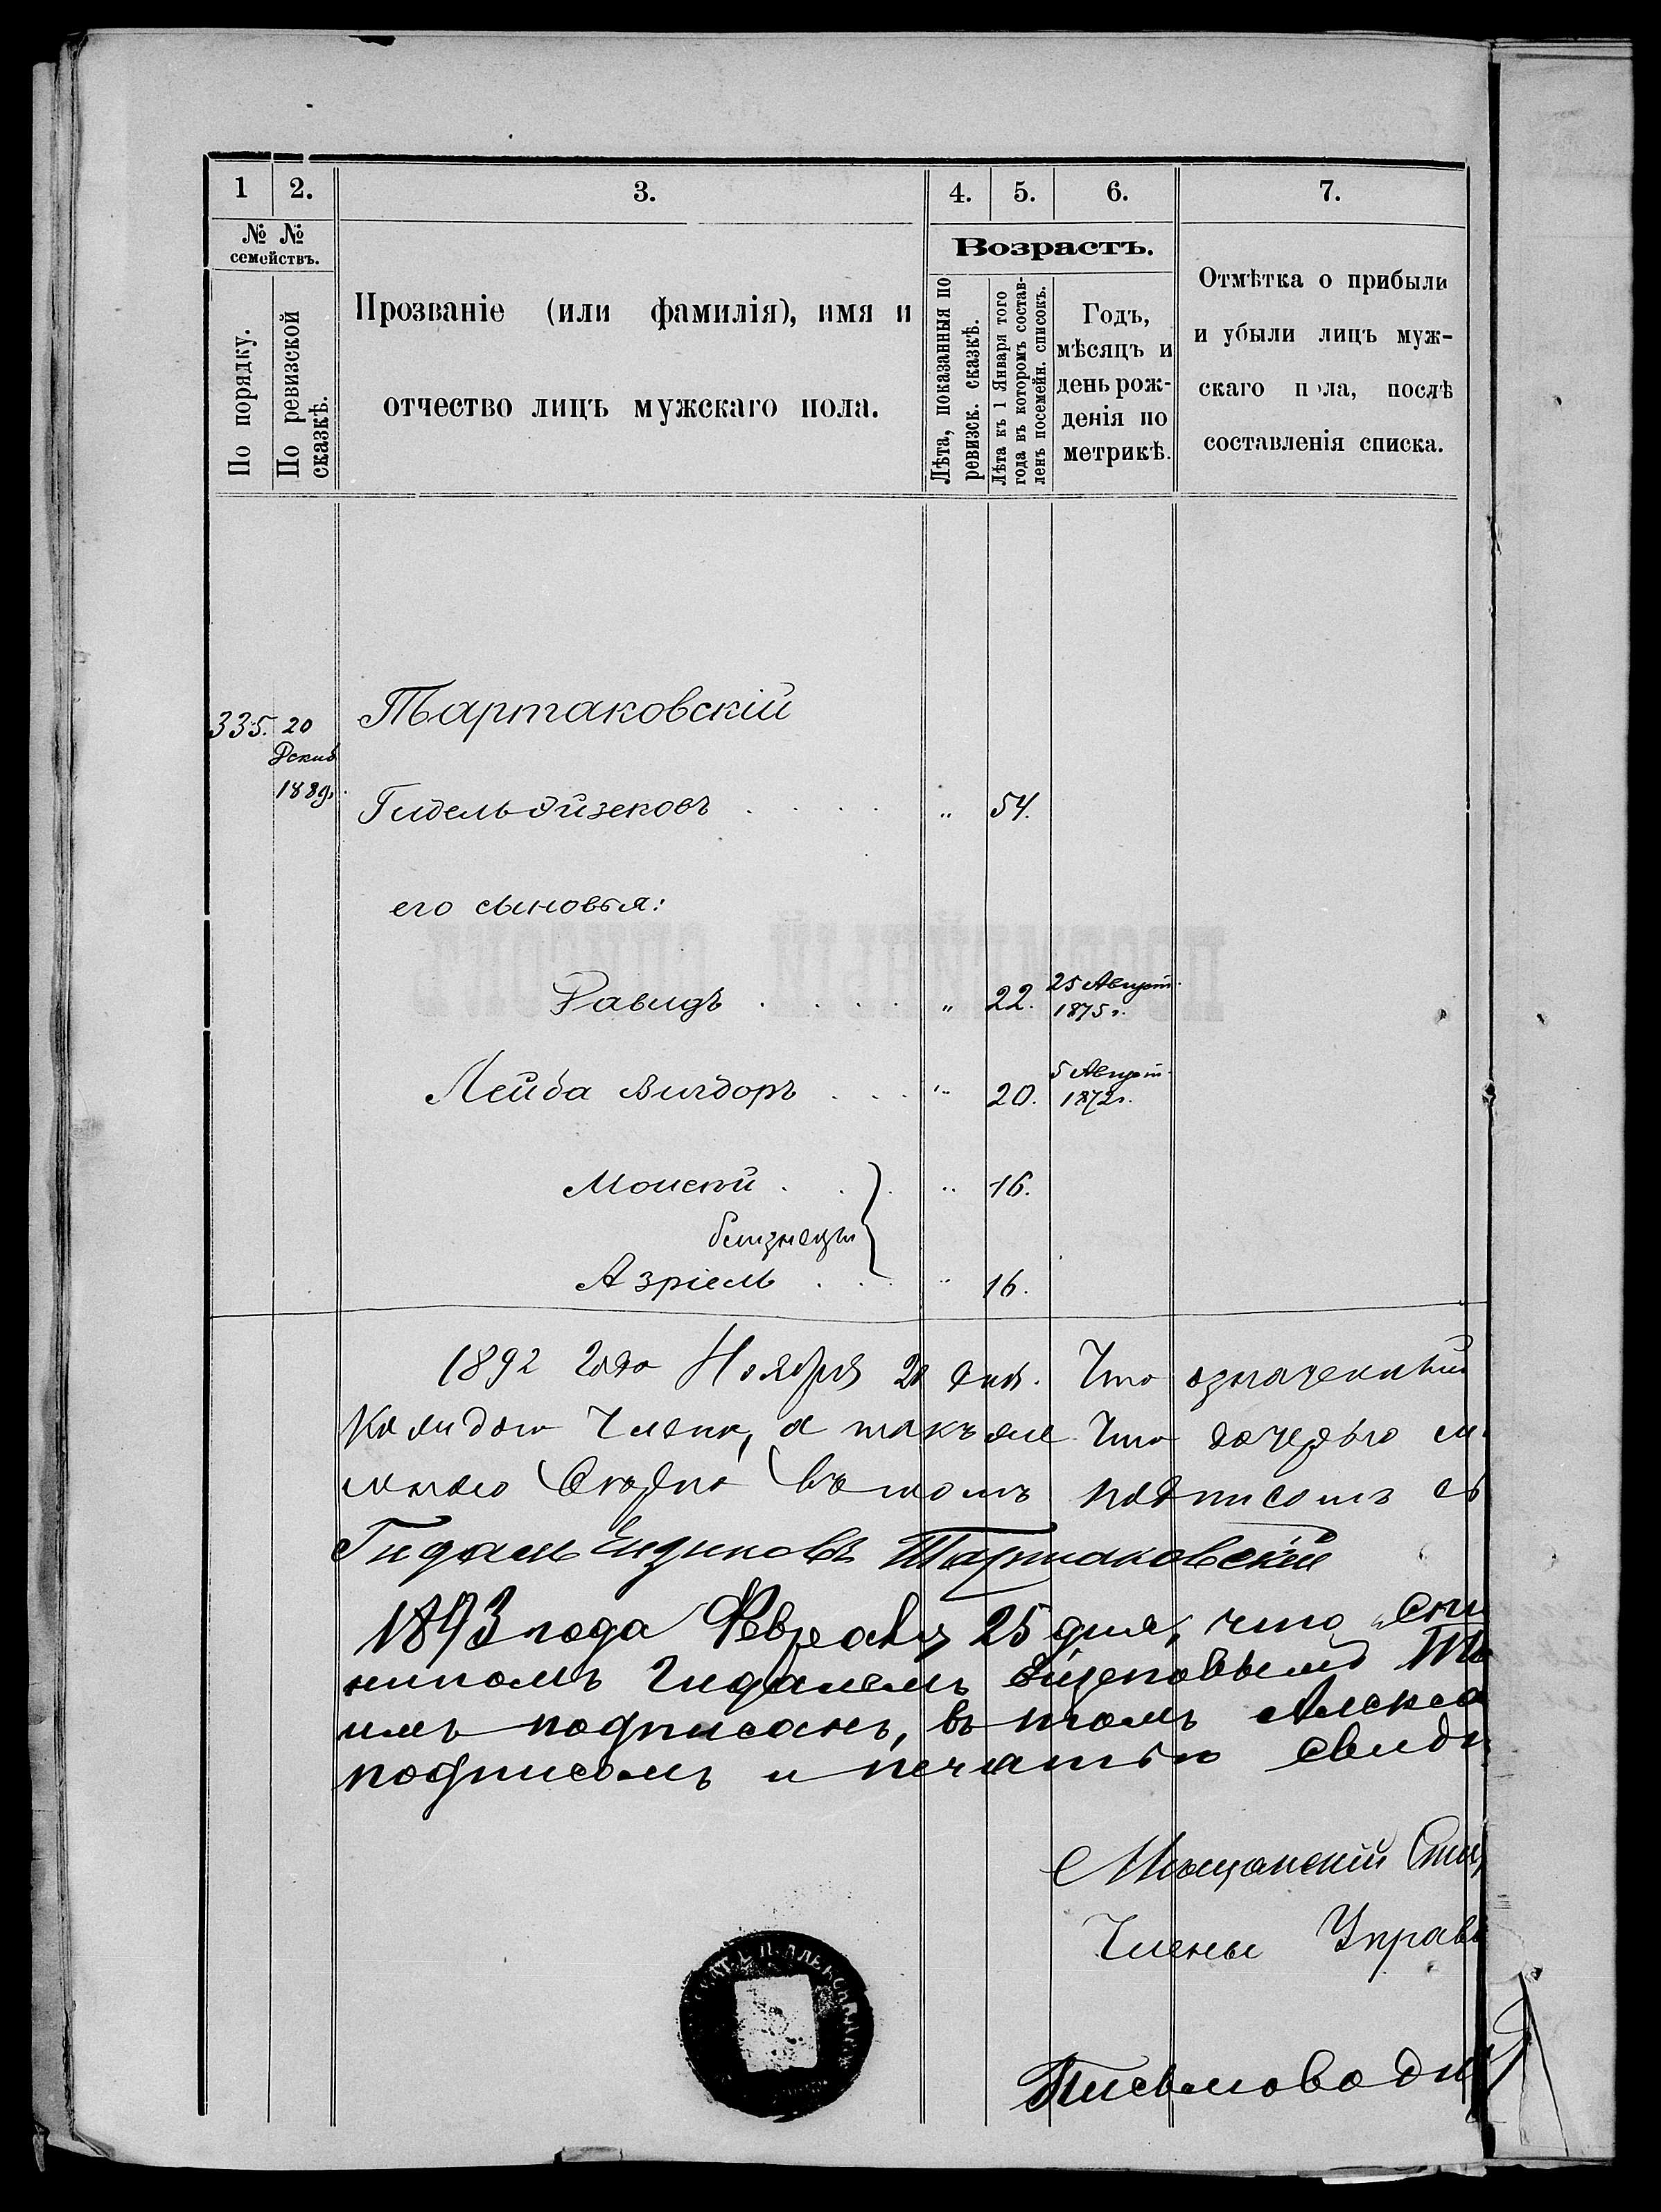 1 2. 3. 4. 5. 6. 7.
№ №
семействъ.
По порядку.
По ревизской
сказкѣ.
Прозваніе (или фамилія), имя и
отчество лицъ мужскаго пола.
Возрастъ.
Лѣта, показанныя по
ревизск. сказкѣ.
Лѣта къ 1 Января того
года въ которомъ состав-
ленъ посемейн. списокъ.
Годъ,
мѣсяцъ и
день рож-
денія по
метрикѣ.
Отмѣтка о прибыли
и убыли лицъ муж-
скаго пола, послѣ
составленія списка.
335. 20 Тартаковскій
1889.
Гидель Эйзековъ " 54.
его сыновья:
Давидъ " 22. 25 Август. 1875 г.
Лейба Вигдоръ " 20. 5 Август. 1872 г.
Мошей " 16.
близнецы
Азріель " 16.
1892 года Ноября дня. Что означенный
члена, а также что дочерью
въ томъ подписомъ
Тартаковскій
1893 года Февраля 25 дня, что
подписанъ, въ томъ Алекса
подписомъ и печатью свидѣ
Мѣщанскій Ста
Члены Управ
Письмоводи